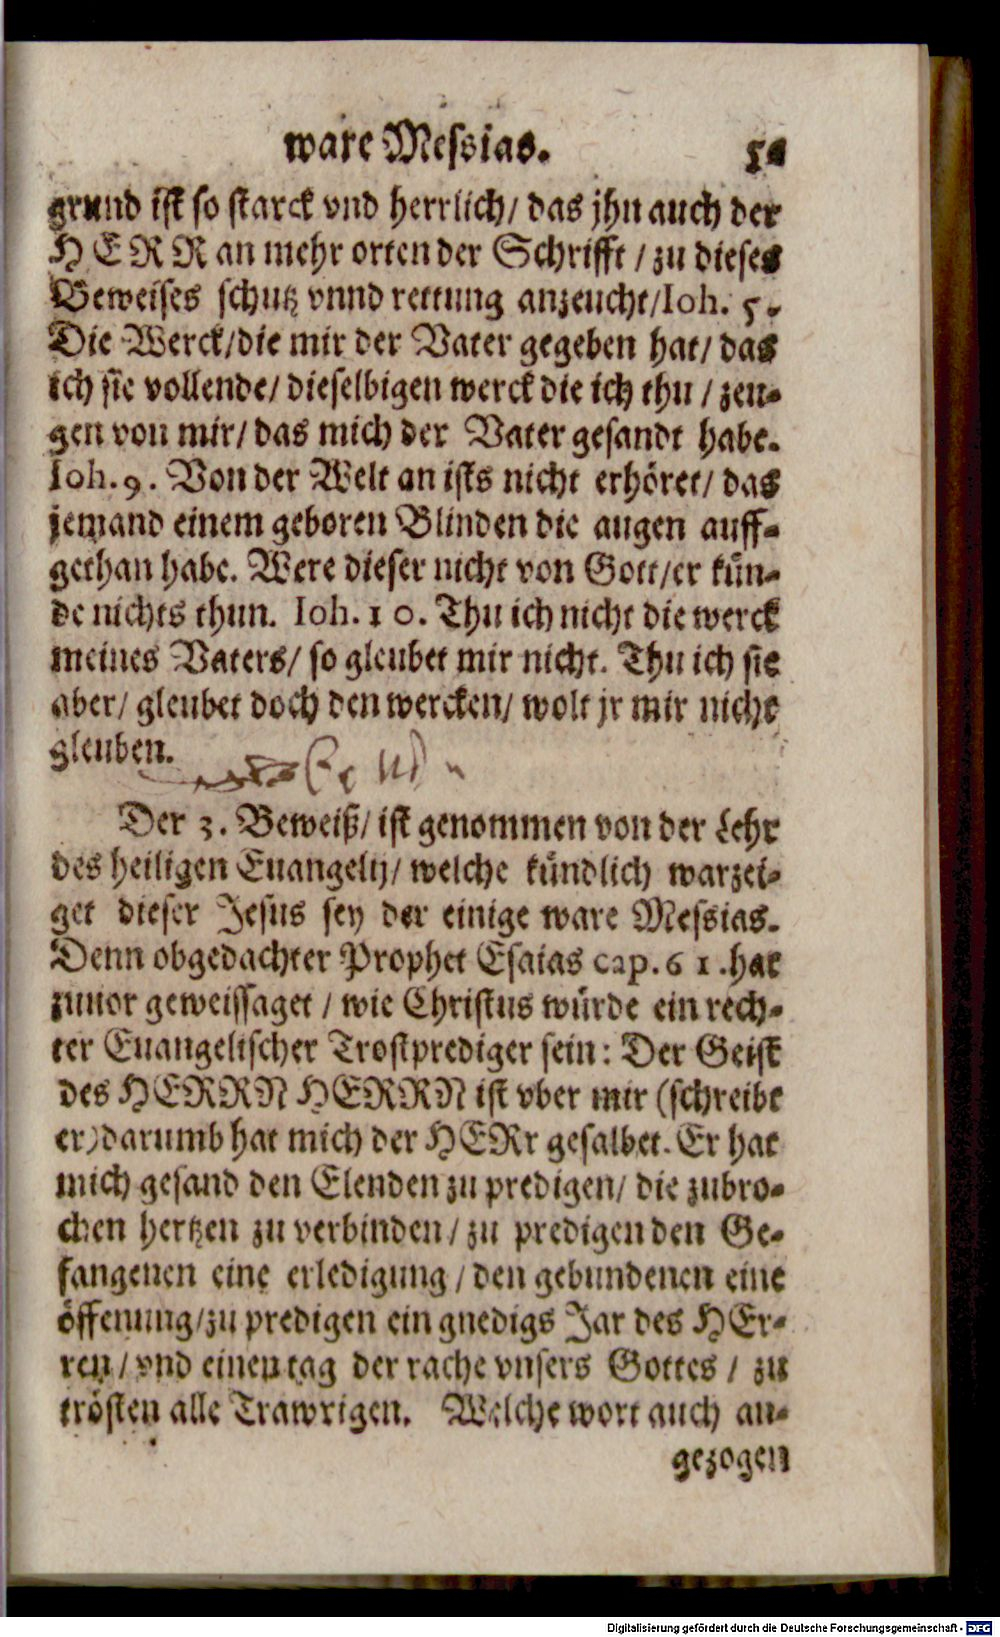 ware Messias.
grund ist so starck vnd herrlich/ das jhn auch der
HERR an mehr orten der Schrifft / zu dieses
Beweises schutz vnnd rettung anzeucht/Ioh. 5.
Die Werck/die mir der Vater gegeben hat/ das
ich sie vollende/ dieselbigen werck die ich thu / zeu-
gen von mir/ das mich der Vater gesandt habe.
Ioh. 9. Von der Welt an ists nicht erhöret/ das
jemand einem geboren Blinden die augen auff-
gethan habe. Were dieser nicht von Gott/er kün-
de nichts thun. Ioh. 10. Thu ich nicht die werck
meines Vaters/ so gleubet mir nicht. Thu ich sie
aber/ gleubet doch den wercken/ wolt jr mir nicht
gleuben.
Der 3. Beweiß/ ist genommen von der Lehr
des heiligen Euangelij/ welche kündlich warzei-
get dieser Jesus sey der einige ware Messias.
Denn obgedachter Prophet Esaias cap. 61. hat
zuuor geweissaget / wie Christus würde ein rech-
ter Euangelischer Trostprediger sein: Der Geist
des HERRN HERRN ist vber mir (schreibt
er) darumb hat mich der HERr gesalbet. Er hat
mich gesand den Elenden zu predigen/ die zubro-
chen hertzen zu verbinden/ zu predigen den Ge-
fangenen eine erledigung / den gebundenen eine
öffenung/zu predigen ein gnedigs Jar des HEr-
ren / vnd einen tag der rache vnsers Gottes / zu
trösten alle Trawrigen. Welche wort auch an-
gezogen
Digitalisierung gefördert durch die Deutsche Forschungsgemeinschaft - DFG